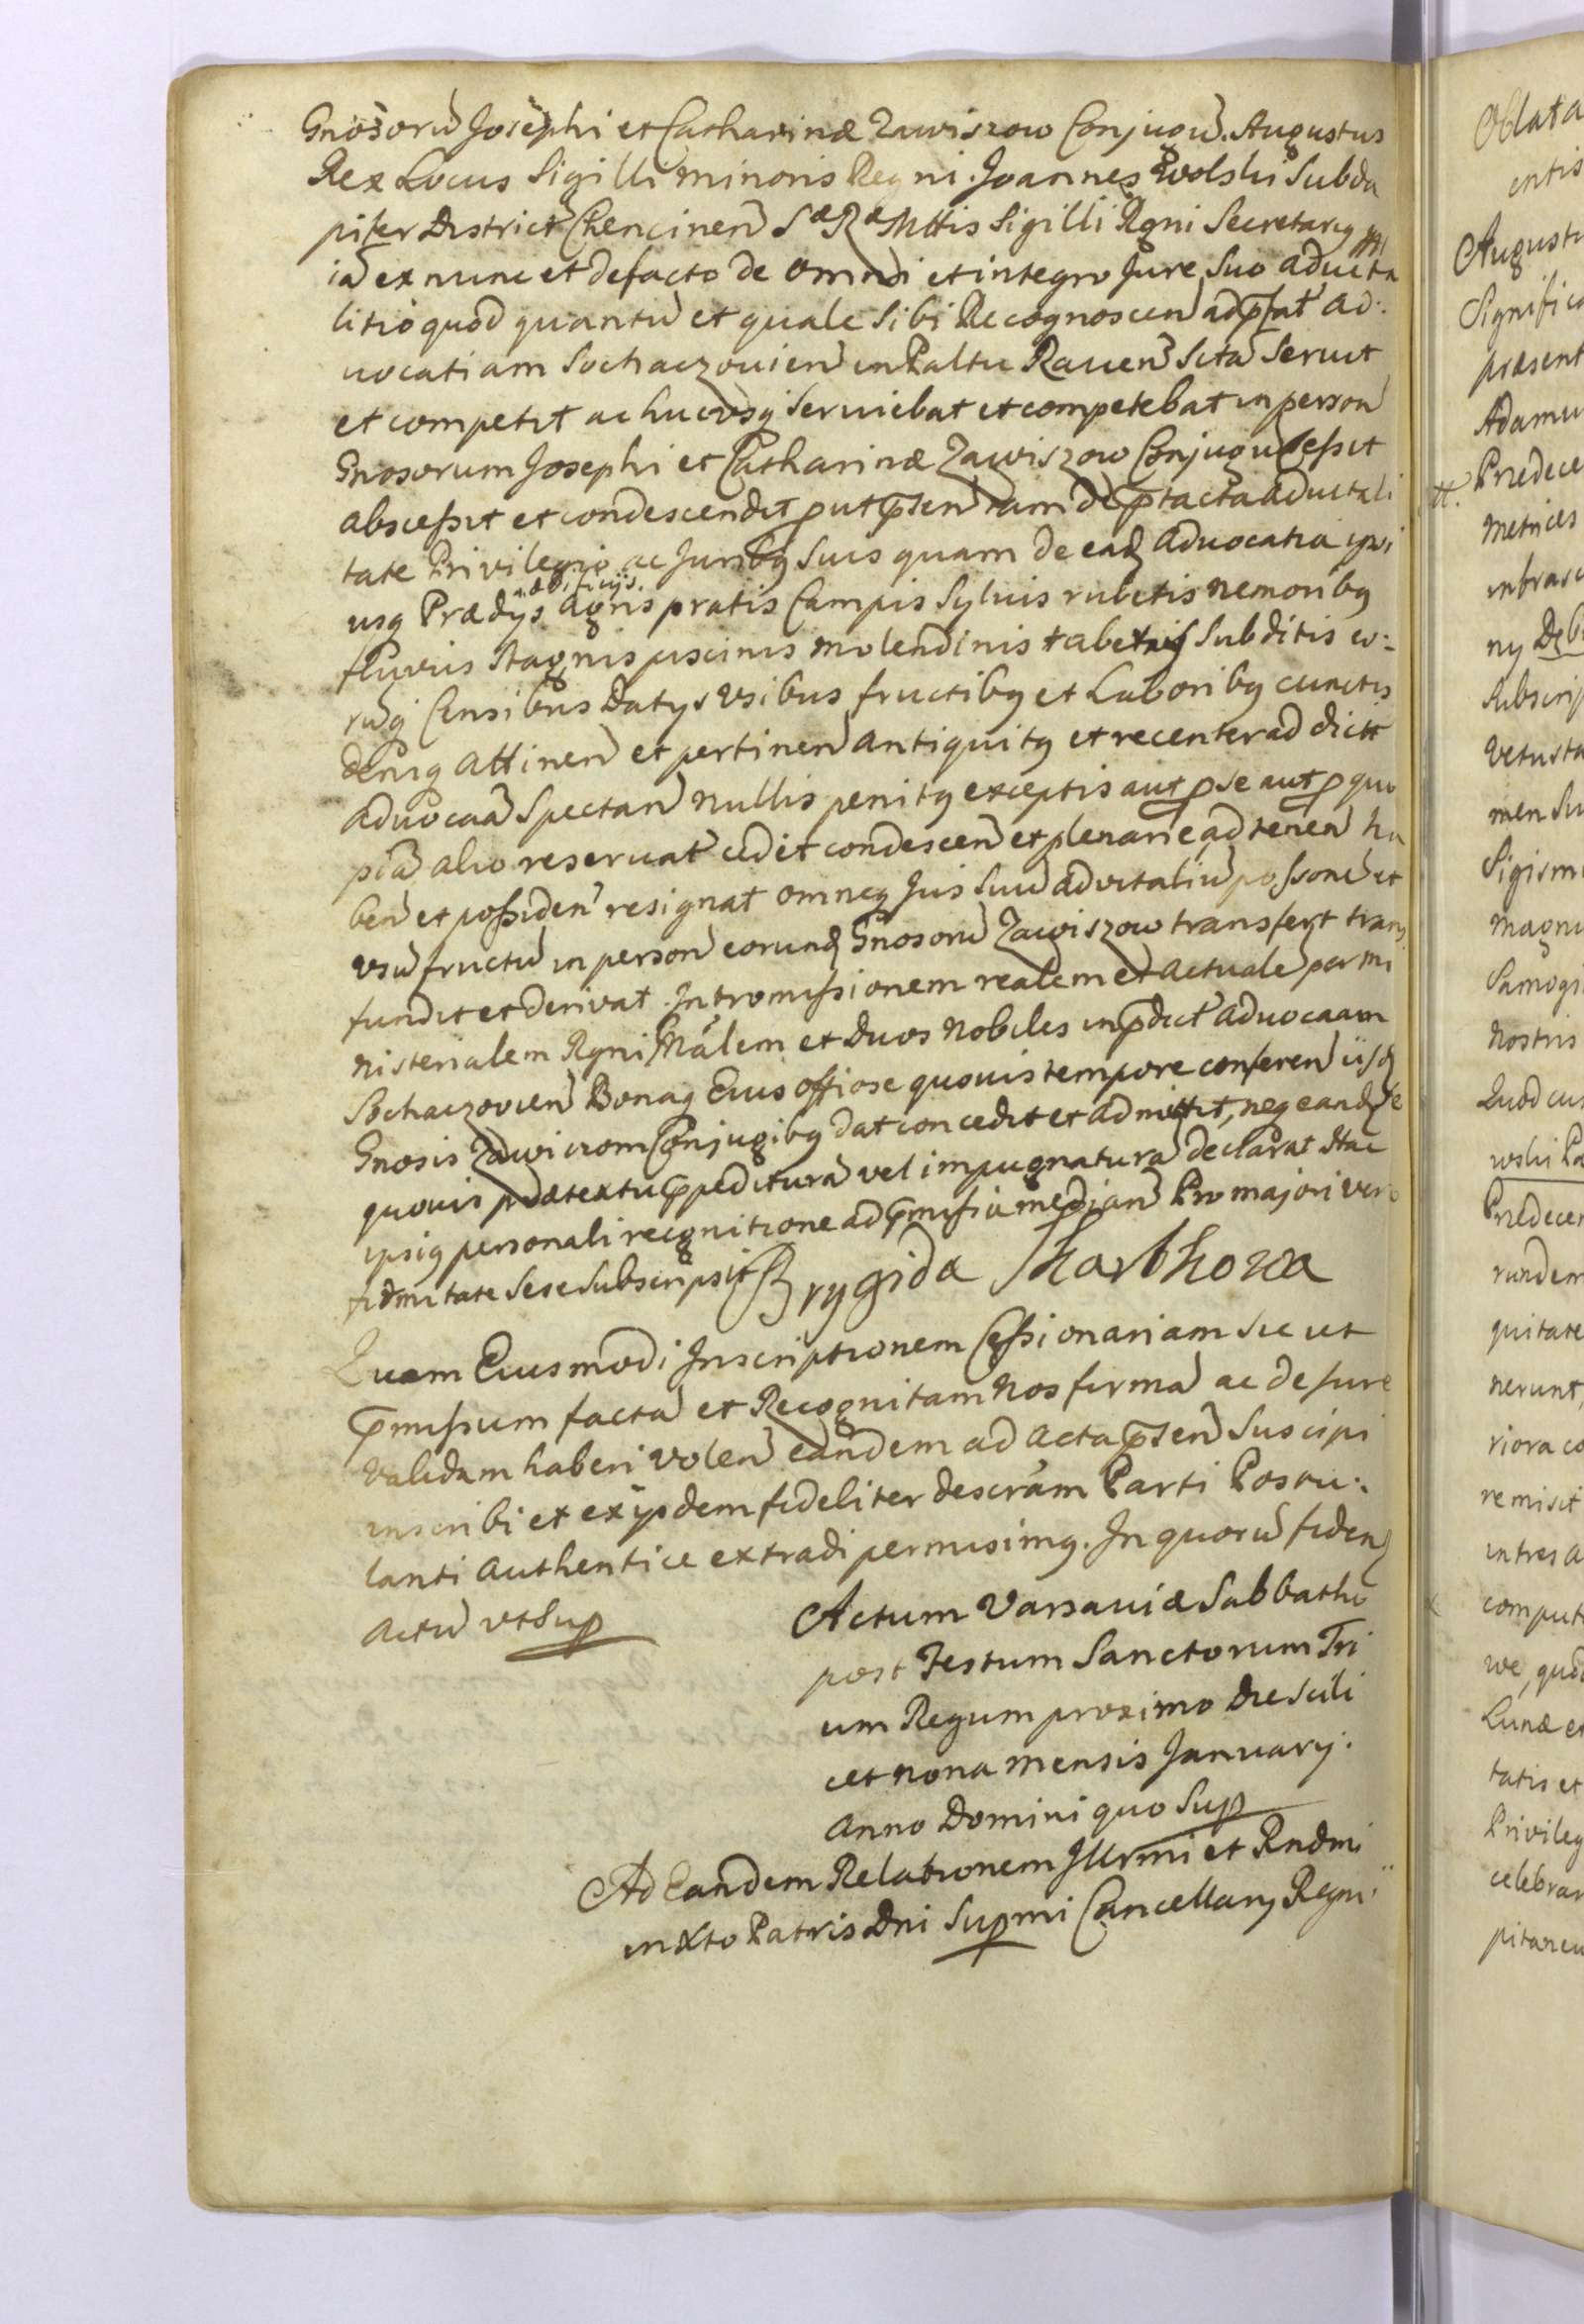 Gnosoru Josephi et Catharinæ Zawiszow Conjugu. Augustus
Rex Locus Sigilli minoris Regni. Joannes Wolski Subda
pifer District Chencinen Sæ Ræ Mttis Sigilli Rgni Secretarq
ia ex nunc et defacto de omni et integro Jure Suo aduita
litio quod quantu et quale Sibi Recognoscen ad pfat ad:
uocatiam Sochaczouien in Paltu Rauen Sita Seruit
et competit ac hucusq Seruiebat et competebat in person
Gnosorum Josephi et Catharinæ Zawiszow Conjugu Cessit
abscessit et condescendit put psen tam de ptacta aduitali
tate Privilegio ac Juribq Suis quam de ead aduocatia ipsi
usq Prædys ædificijs. agris pratis Campis Syluis rubetis nemoribq
fluviis Stagnis piscinis molendinis tabernis Subditis eo:
ruq Censibus Datys Vsibus fructibq et Laboribq cunctis
deniq attinen et pertinen antiquitq et recenter ad dict
aduocaa Spectan nullis penitq exceptis aut p se aut p quo
pia alio reseruat cedit condescen et plenarie ad tenen ha
ben et possiden resignat omneq Jus Suu aduitaliu possone et
Vsu fructu in person eorund Gnosoru Zawiszow transfert trans
fundit et derivat. Intromissionem realem et actuale per mi
nisterialem Rgni Gnalem et Duos Nobiles in pdict aduocaam
Sochaczouien Bonaq Eius offiose quouis tempore conferen iisd
Gnosis Zawiszom Conjugibq dat concedit et admittit, neq eand se
quouis prætextu ppeditura vel impugnatura declarat Hac
ipsiq personali recgnitione ad pmissa median Pro majori vero
firmitate Sese Subscripsit Brygida Skarbkowa
Quam Eiusmodi Inscriptionem Cessionariam sic ut
pmissum facta et Recognitam Nos firma ac de jure
validam haberi Volen eandem ad acta psen Suscipi
inscribi et ex ijsdem fideliter descram Parti Postu:
lanti authentice extradi permisimq. In quoru fidem
Actu vt Sup
Actum Varsauiæ Sabbatho
post Festum Sanctorum Tri
um Regum proximo die Scili
cet nona mensis Januarij.
Anno Domini quo Sup
Ad Eandem Relationem Illrmi et Rndmi
in Xto Patris Dni Supmi Cancellarij Regni
Oblata
entis
Augustu
Significa
præsent
Adamu
Prædece
metrices
infrasc
ny Deb
Subscrip
vetusta
men Su
Sigism
magnu
Samogi
Nostris
Quod cu
wski Pa
Prædece
rundem
quitate
nerunt,
riora co
remisit
intres a
comput
we, quod
Lunæ e
tatis et
Privileg
celebra
pitaneu